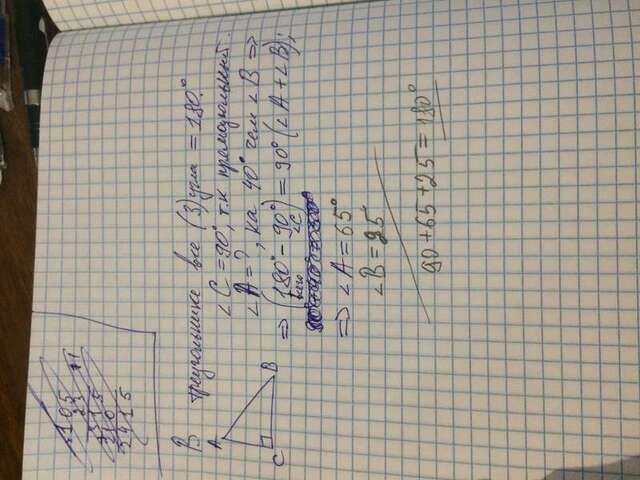 105
23
+1
315
210
2415
В треугольнике все (3) угла = 180°.
∠C = 90°, т.к прямоугольный.
∠A = ?, на 40° чем ∠B ⇒
⇒ (180° - 90°) = 90° (∠A + ∠B);
всего ∠C
⇒ ∠A = 65°
∠B = 25
90 + 65 + 25 = 180°
A
C
B